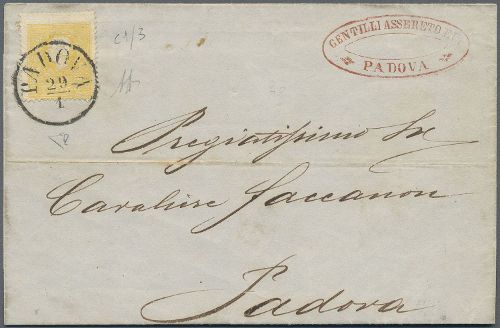 PADOVA
29
1
GENTILLI ASSERETO E
PADOVA
Pregiatissimo Sr
Cavaliere Jaccanon
Padova